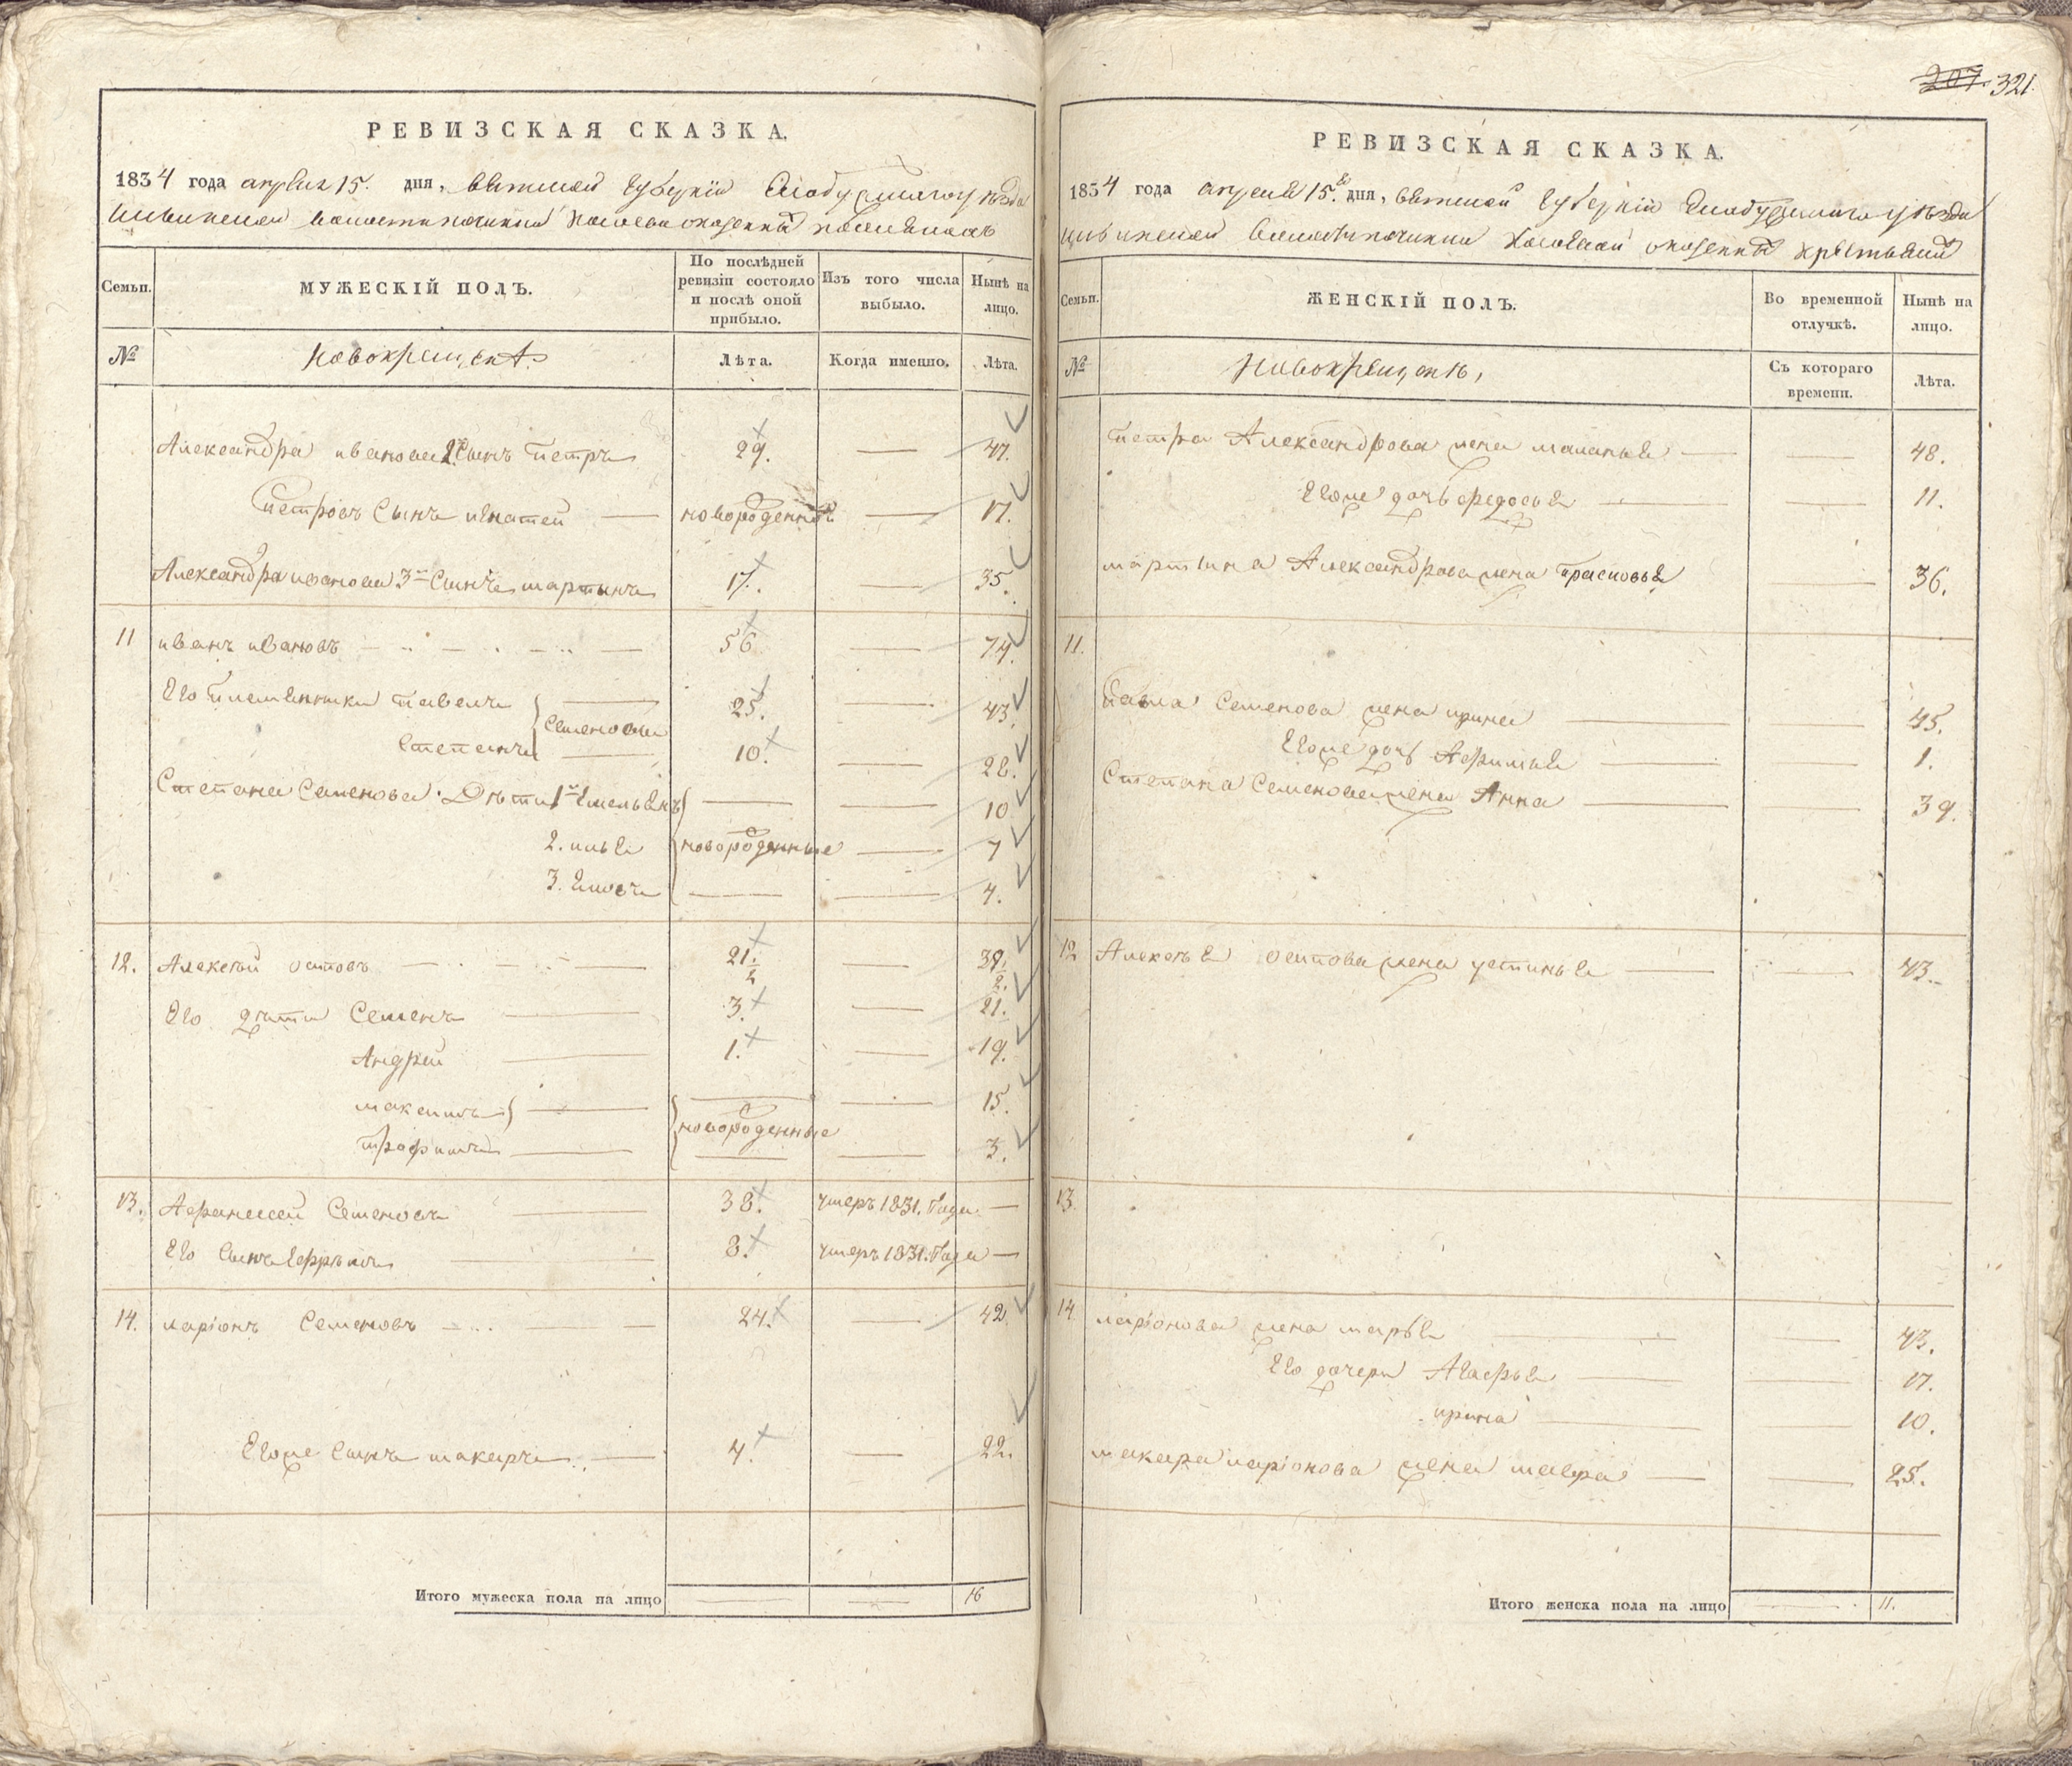 РЕВИЗСКАЯ СКАЗКА.
1834 года апреля 15. дня, вятской губернiи Слободскаго уѣзда
волости починка о казенныхъ
Семьи.
МУЖЕСКІЙ ПОЛЪ.
По послѣдней ревизіи состояло и послѣ оной прибыло.
Изъ того числа выбыло.
Нынѣ на лицо.
№
новокрещенъ
Лѣта.
Когда именно.
Лѣта.
Александра иванова 2й Сынъ Петръ 29. — 47.
Петровъ Сынъ игнатей — новорожденной — 17.
Александра иванова 3й Сынъ мартынъ 17. — 35.
11 иванъ ивановъ — 56. — 74.
Его племянники павелъ } Семеновы 25. — 43.
Степанъ 10. — 28.
Степана Семенова Дѣти 1й Емельянъ — 10
2. илья новорожденные — 7
3. — 4.
12. Алексѣй осиповъ — 21.½ — 39.½.
Его дѣти Семенъ — 3. — 21.
Андрей — 1. — 19.
максимъ } — новорожденные — 15.
трофимъ — 3.
13. Афанасей Семеновъ — 38. умеръ 1831. Года —
Его Сынъ Ефремъ — 8. умеръ 1831. Года —
14. ларiонъ Семеновъ — 24. — 42.
Егоже Сынъ макаръ — 4. — 22.
Итого мужеска пола на лицо 16
207. 321.
РЕВИЗСКАЯ СКАЗКА.
1834 года апреля 15.го дня, вятской губернiи Слободскаго уѣзда
волости починка о казенныхъ крестьянъ
Семьи.
ЖЕНСКІЙ ПОЛЪ.
Во временной отлучкѣ.
Нынѣ на лицо.
№
Новокрещенъ,
Съ котораго времени.
Лѣта.
петра Александрова жена маланья — 48.
Егоже дочь федосья — 11.
мартына Александрова жена прасковья — 36.
11.
Павла Семенова жена ирина — 45.
Егоже дочь Афимья — 1.
Степана Семенова жена Анна — 39.
12 Алексѣя осипова жена устинья — 43.
13.
14 ларiонова жена марья — 43.
Его дочери Агафья — 17.
ирина — 10.
макара ларiонова жена мавра — 25.
Итого женска пола на лицо 11.